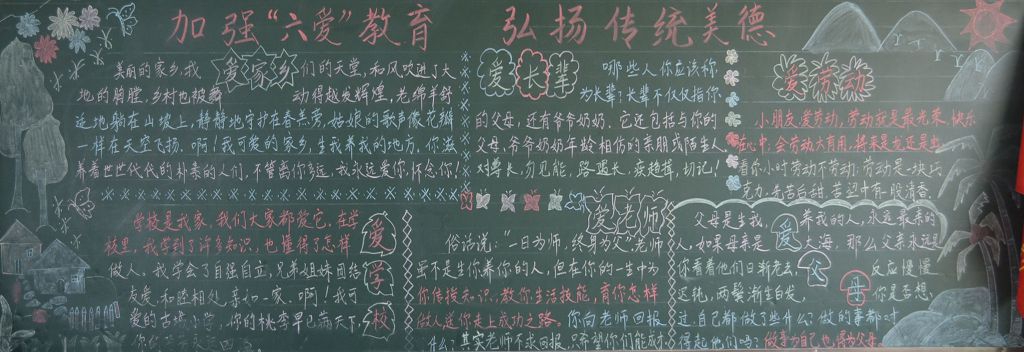 加强“六爱”教育 弘扬传统美德
爱家乡
美丽的家乡,我们的天堂,和风吹进了大
地的胸膛,乡村也被舞动得越发辉煌,老绵羊舒
适地躺在山坡上,静静地守护在春
姑娘的歌声像花瓣
一样在天空飞扬。啊!我可爱的家乡,生我养我的地方,你滋
养着世世代代的朴素的人们,不管离你多远,我永远爱你,怀念你!
爱长辈
哪些人你应该称
为长辈?长辈不仅仅指你
的父母,还有爷爷奶奶。它还包括与你的
父母、爷爷奶奶年龄相仿的亲朋或陌生人。
对尊长,勿见能,路遇长,疾趋揖,切记!
爱劳动
小朋友,爱劳动,劳动就是最光荣,快乐
中,会劳动大有用,将来是
看你小时劳动不劳动,劳动是一块
爱学校
学校是我家,我们大家都爱它。在学
校里,我学到了许多知识,也懂得了怎样
做人。我学会了自强自立,兄弟姐妹团结
友爱,和睦相处,亲如一家。啊!我可
爱的古
你的桃李早已满天下,
爱老师
俗话说:“一日为师,终身为父”老师
虽不是生你养你的人,但在你的一生中为
你传授知识,教你生活技能,育你怎样
做人送你走上成功之路。你向老师回报
什么?其实老师不求回报,只希望你们能成
爱父母
父母是生我、养我的人,永远最亲的
人,如果母亲是大海,那么父亲永远是
你看着他们日渐老去,反应慢慢
迟钝,两鬓渐生白发,你是否想
过,自己都做了些什么?做的事都对
得起他们吗?做